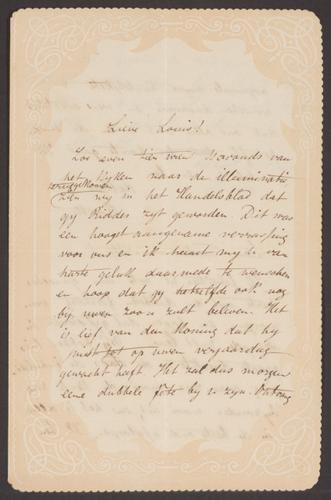 Lieve Louis!
Zoo even hier van 's avonds van
het kijken naar de illuminatie
teruggekomen
zien wij in het Handelsblad dat
gij Ridder zijt geworden Dit was
een hoogst aangename verrassing
voor ons en ik haast mij u van
harte geluk daarmede te wenschen
en hoop dat gij hetzelfde ook nog
bij uwen zoon zult beleven. Het
is lief van den Koning dat hij
juist tot op uwen verjaardag
gewacht heeft. Het zal dus morgen
eene dubbele fête bij u zijn. Ontvang